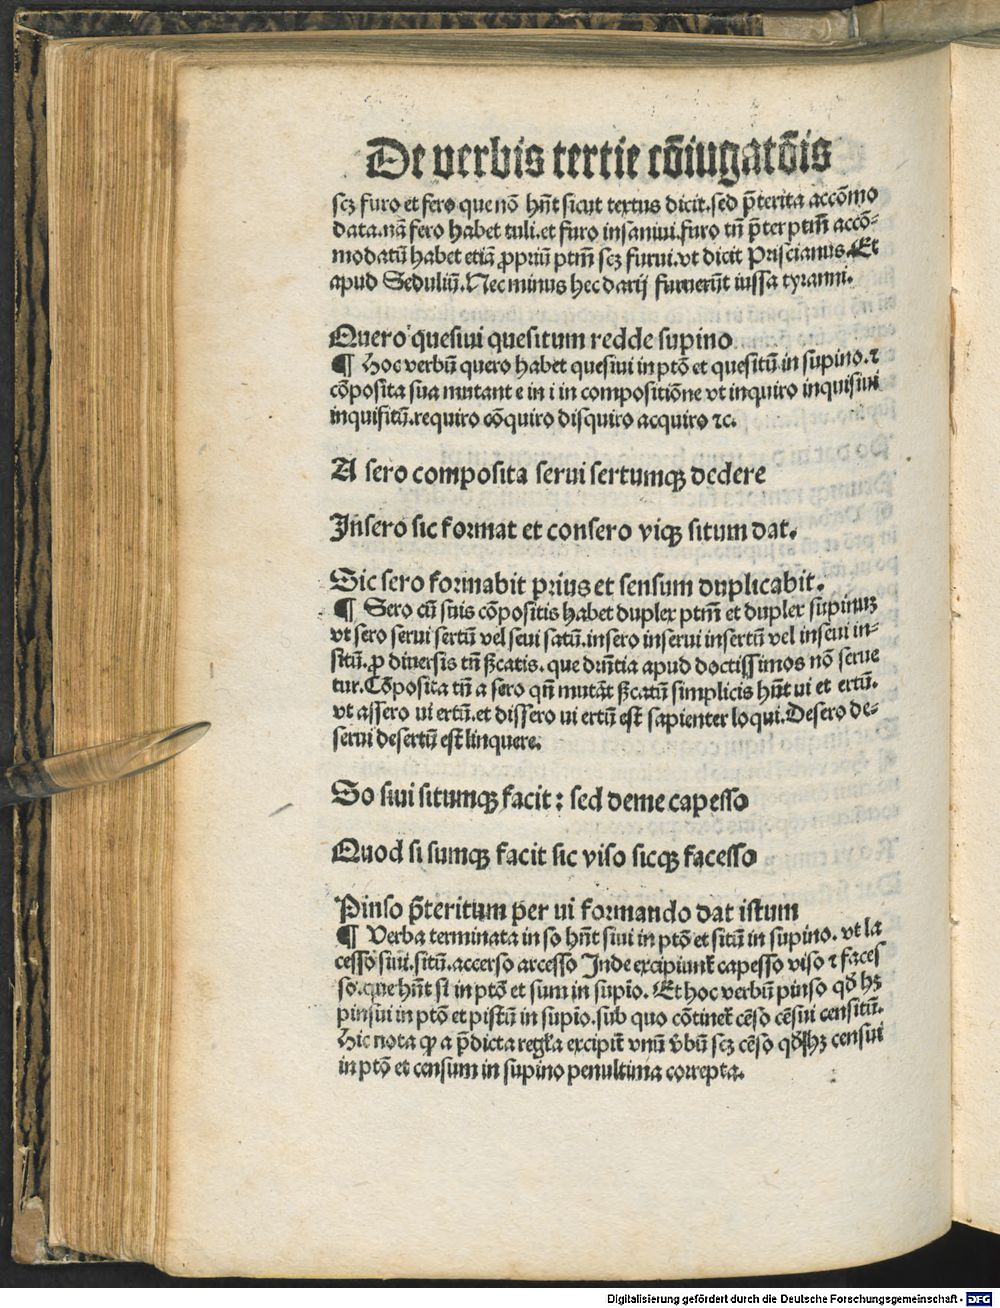 De verbis tertie cōiugatōis
scꝫ furo et fero que nō hn̄t sicut textus dicit.sed p̄terita accōmo
data.nā fero habet tuli.et furo insaniui.furo tn̄ p̄ter ptm̄ accō-
modatū habet etiā ꝓpriū ptm̄ scꝫ furui.vt dicit Priscianus.Et
apud Seduliū.Nec minus hec darij furuerūt iussa tyranni.
Quero quesiui quesitum redde supino
¶ Hoc verbū quero habet quesiui in ptō et quesitū in supino.⁊
cōposita sua mutant e in i in compositiōne vt inquiro inquisiui
inquisitū.requiro cōquiro disquiro acquiro ⁊c.
A sero composita serui sertumqꝫ dedere
Insero sic format et consero viqꝫ situm dat.
Sic sero formabit prius et sensum duplicabit.
¶ Sero cū suis cōpositis habet duplex ptm̄ et duplex supinuꝫ
vt sero serui sertū vel seui satū.insero inserui insertū vel inseui in-
sitū.ꝓ diuersis tn̄ sīcatis.que drn̄tia apud doctissimos nō serue
tur.Cōposita tn̄ a sero qn̄ mutāt sīcatū simplicis hn̄t ui et ertū.
vt assero ui ertū.et dissero ui ertū est̄ sapienter loqui.Desero de-
serui desertū est̄ linquere.
So siui situmqꝫ facit: sed deme capesso
Quod si sumqꝫ facit sic viso sicqꝫ facesso
Pinso p̄teritum per ui formando dat istum
¶ Verba terminata in so hn̄t siui in ptō et sitū in supino. vt la
cesso siui.situ̅.accerso arcesso Inde excipiunt̄ capesso viso ⁊ faces
so.que hn̄t si in ptō et sum in supio. Et hoc verbū pinso qd̄ hꝫ
pinsui in ptō et pistū in supio.sub quo cōtinet̄ cēso cēsui censitū.
Hic nota ꝙ a p̄dicta regl̄a excipit̄ vnū v̄bū scꝫ cēso qd̄ hꝫ censui
in ptō et censum in supino penultima correpta.
Digitalisierung gefördert durch die Deutsche Forschungsgemeinschaft - DFG